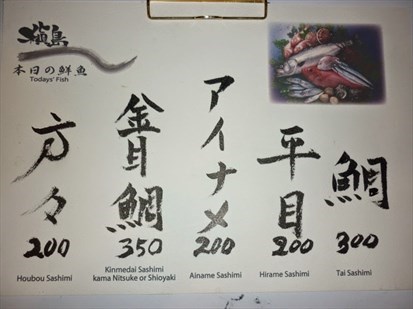 本日の鮮魚
Todays' Fish
方々
200
Houbou Sashimi
金目鯛
350
Kinmedai Sashimi
kama Nitsuke or Shioyaki
アイナメ
200
Ainame Sashimi
平目
200
Hirame Sashimi
鯛
300
Tai Sashimi